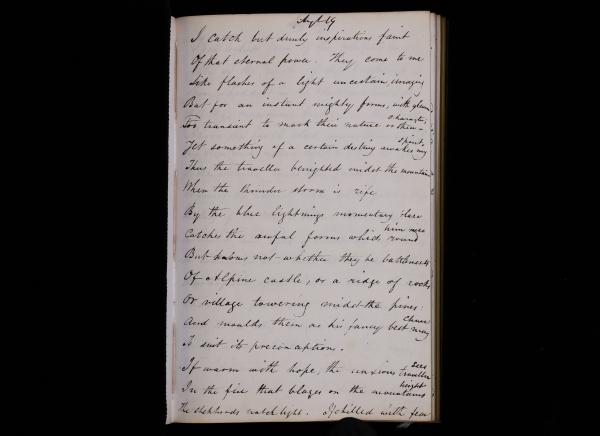 Augt 19
I catch but dimly inspirations faint
Of that eternal power. They come to me
Like flashes of a light uncertain, imaging
But for an instant mighty forms, with gleams
Too transient to mark their nature or their character,
Yet something of a certain destiny awakes my spirit,
Thus the traveller benighted midst the mountains
When the thunder storm is rife
By the blue lightnings momentary glare
Catches the awful forms which round him rise
But knows not whether they be battlements
Of Alpine castle, or a ridge of rocks
Or village towering midst the pines;
And moulds them as his fancy best may
To suit its preconception.
If warm with hope, the anxious traveller sees
In the fire that blazes on the mountains height
The shepherds watch light. If chilled with fear